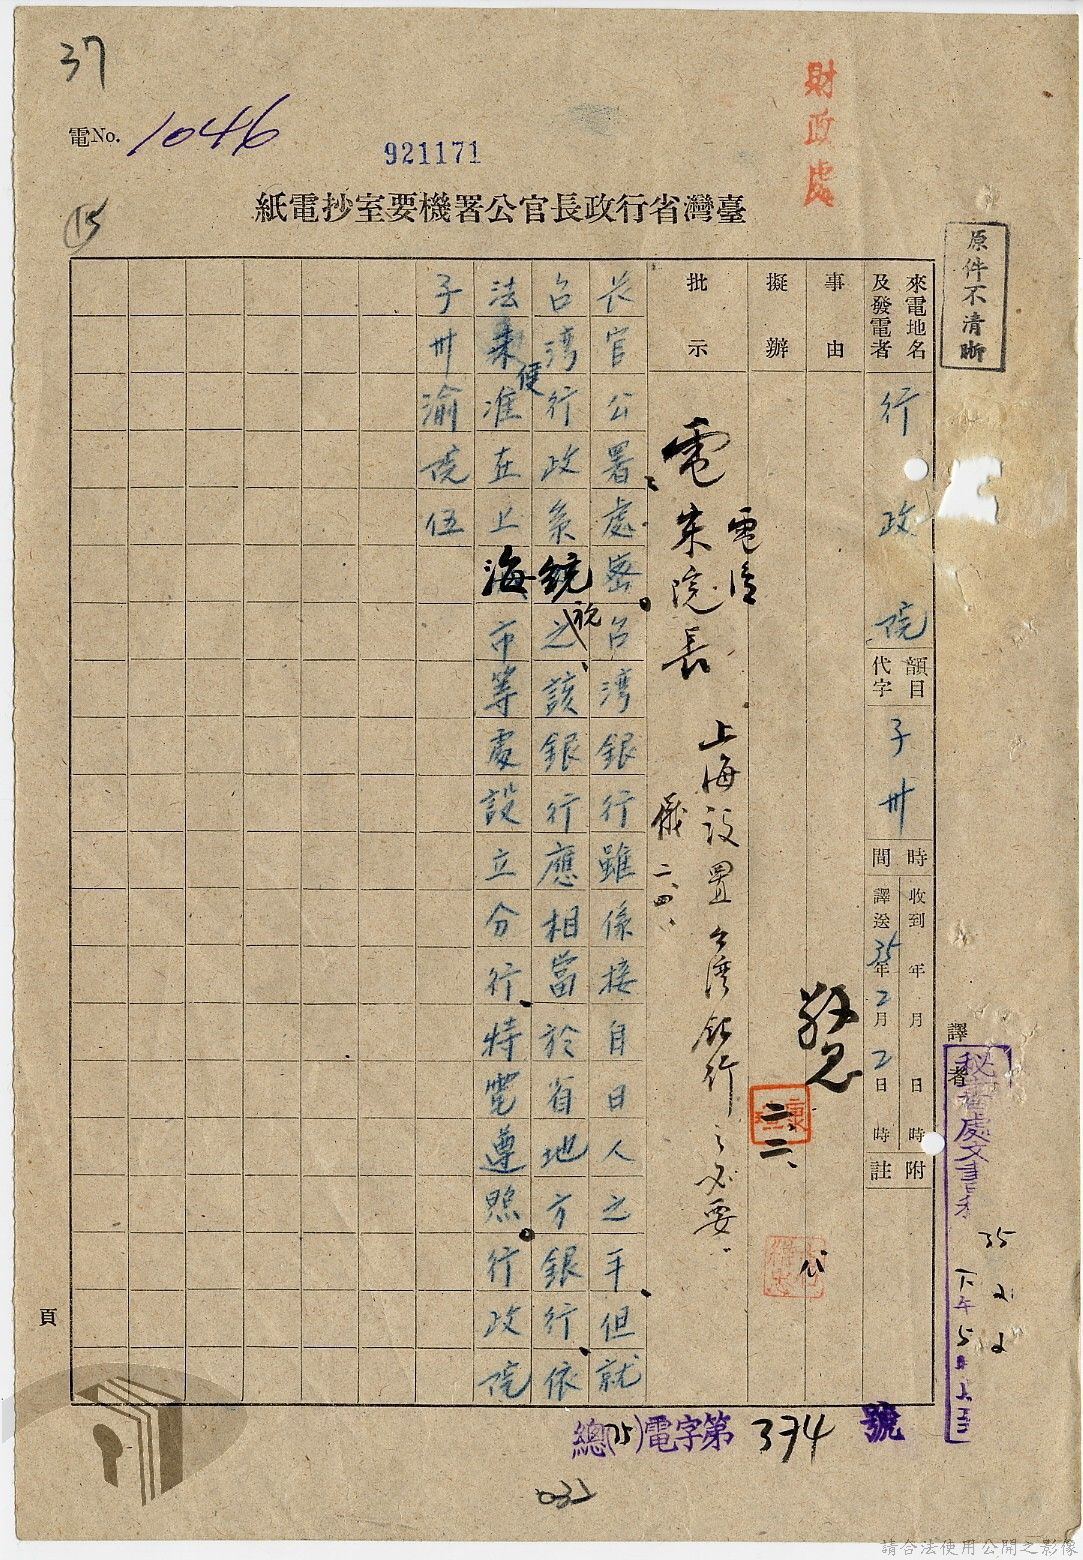 37
電No. 1046
921171
財政處
15
臺灣省行政長官公署機要室抄電紙
原件不清晰
來電地名及發電者
行政院
韻目代字
子卅
時間
收到 年 月 日 時
譯送 35年2月2日 時
附註
譯者
秘書處文書科
35 2 2
下午5時
事由
擬辦
二、二、
批示
電宋院長
上海設置台灣銀行之必要
二、四、
長官公署處密台灣銀行雖係接自日人之手但就
台灣行政系統視之該銀行應相當於省地方銀行依
法未便准在上海市等處設立分行特電遵照行政院
子卅渝院伍
頁
總(35)電字第 374 號
032
請合法使用公開之影像